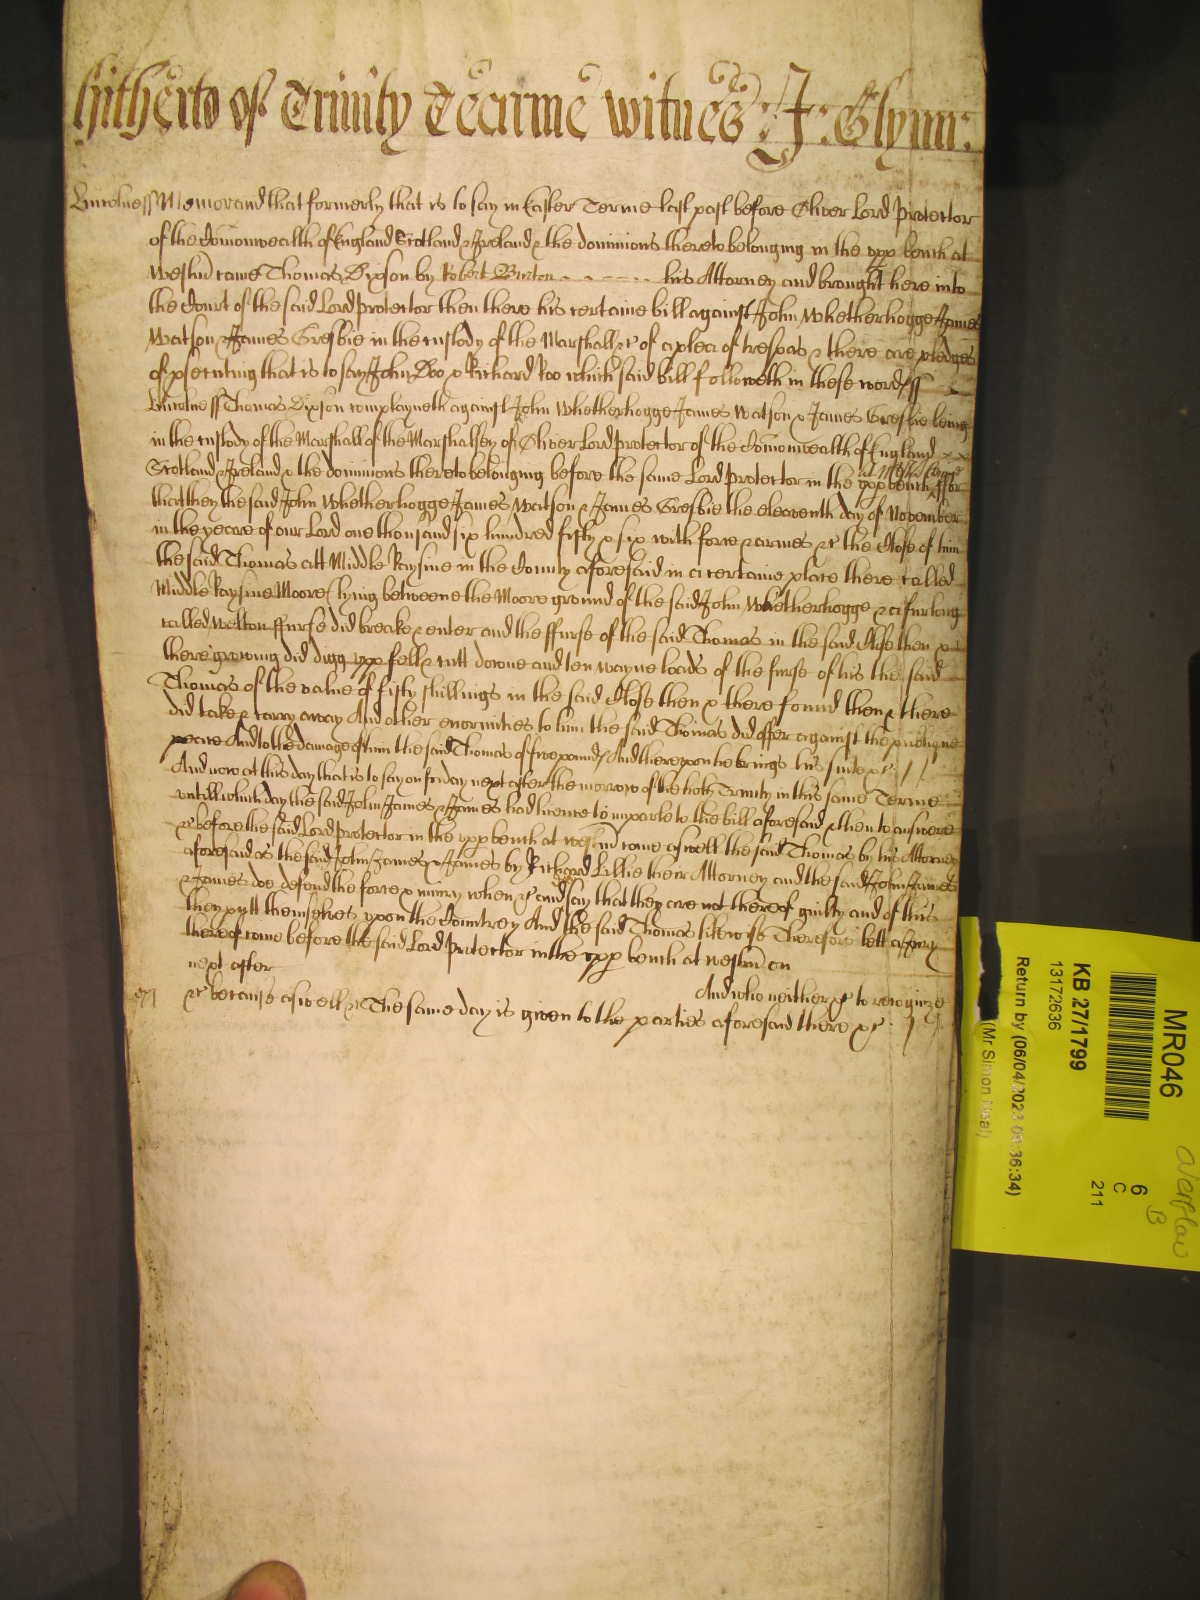 hitherto of Trinity Tearme witnes : J : Glynn :
Lincolne ss Memorand that formerly that is to say in Easter Terme last past before Oliver Lord Protector
of the Comonwealth of England Scotland & Ireland & the dominions thereto belonging in the upp bench at
Westm came Thomas Dixson by Robert Burton his Attorney and brought here into
the Court of the said Lord Protector then there his certaine bill against John Whetherhogge James
Watson & James Gresbie in the custody of the Marshall &c of a plea of trespas & there are pledges
of psecuting that is to say John Doo & Richard Roo which said bill followeth in these words ss
Lincolne ss Thomas Dixson complayneth against John Whetherhogge James Watson & James Gresbie being
in the custody of the Marshall of the Marshallsey of Oliver Lord Protector of the Comonwealth of England
Scotland & Ireland & the dominions thereto belonging before the same Lord Protector in the upp bench ffor
that they the said John Whetherhogge James Watson & James Gresbie the eleaventh day of November
in the yeare of our Lord one thousand six hundred fifty & six with force & armes &c the Close of him
the said Thomas att Middle Raysine in the County aforesaid in a certaine place there called
Middle Raysine Moore (lying betweene the Moore ground of the said John Whetherhogge & a furlong
called Welton ffurse did breake & enter and the ffurse of the said Thomas in the said Close then &
there growing did digg upp fell & cutt downe and ten wayne loads of the furse of his the said
Thomas of the value of fifty shillings in the said Close then & there found then & there
did take & carry away And other enormities to him the said Thomas did offer against the publique
peace And to the damage of him the said Thomas of five pounds And thereupon he brings his suite &c
And now at this day that is to say on friday next after the morrow of the holy Trinity in this same Terme
untill which day the said John James & James had licence to imparle to the bill aforesaid & then to answere
&c before the said Lord Protector in the upp bench at Westm came aswell the said Thomas by his Attorney
aforesaid as the said John James & James by Richard Lillie their Attorney and the said John James
& James doe defend the force & iniury when &c and say that they are not thereof guilty and of this
they putt themselves upon the Countrey And the said Thomas likewise Therefore lett a Jury
thereof come before the said Lord Protector in the upp bench at Westm on
next after And who neither &c to recognize
&c because aswell &c The same day is given to the parties aforesaid there &c
MR046
KB 27/1799
13172636
Return by (06/04/2023 09:36:34)
(Mr Simon Neal)
6
C
211
overflow
B